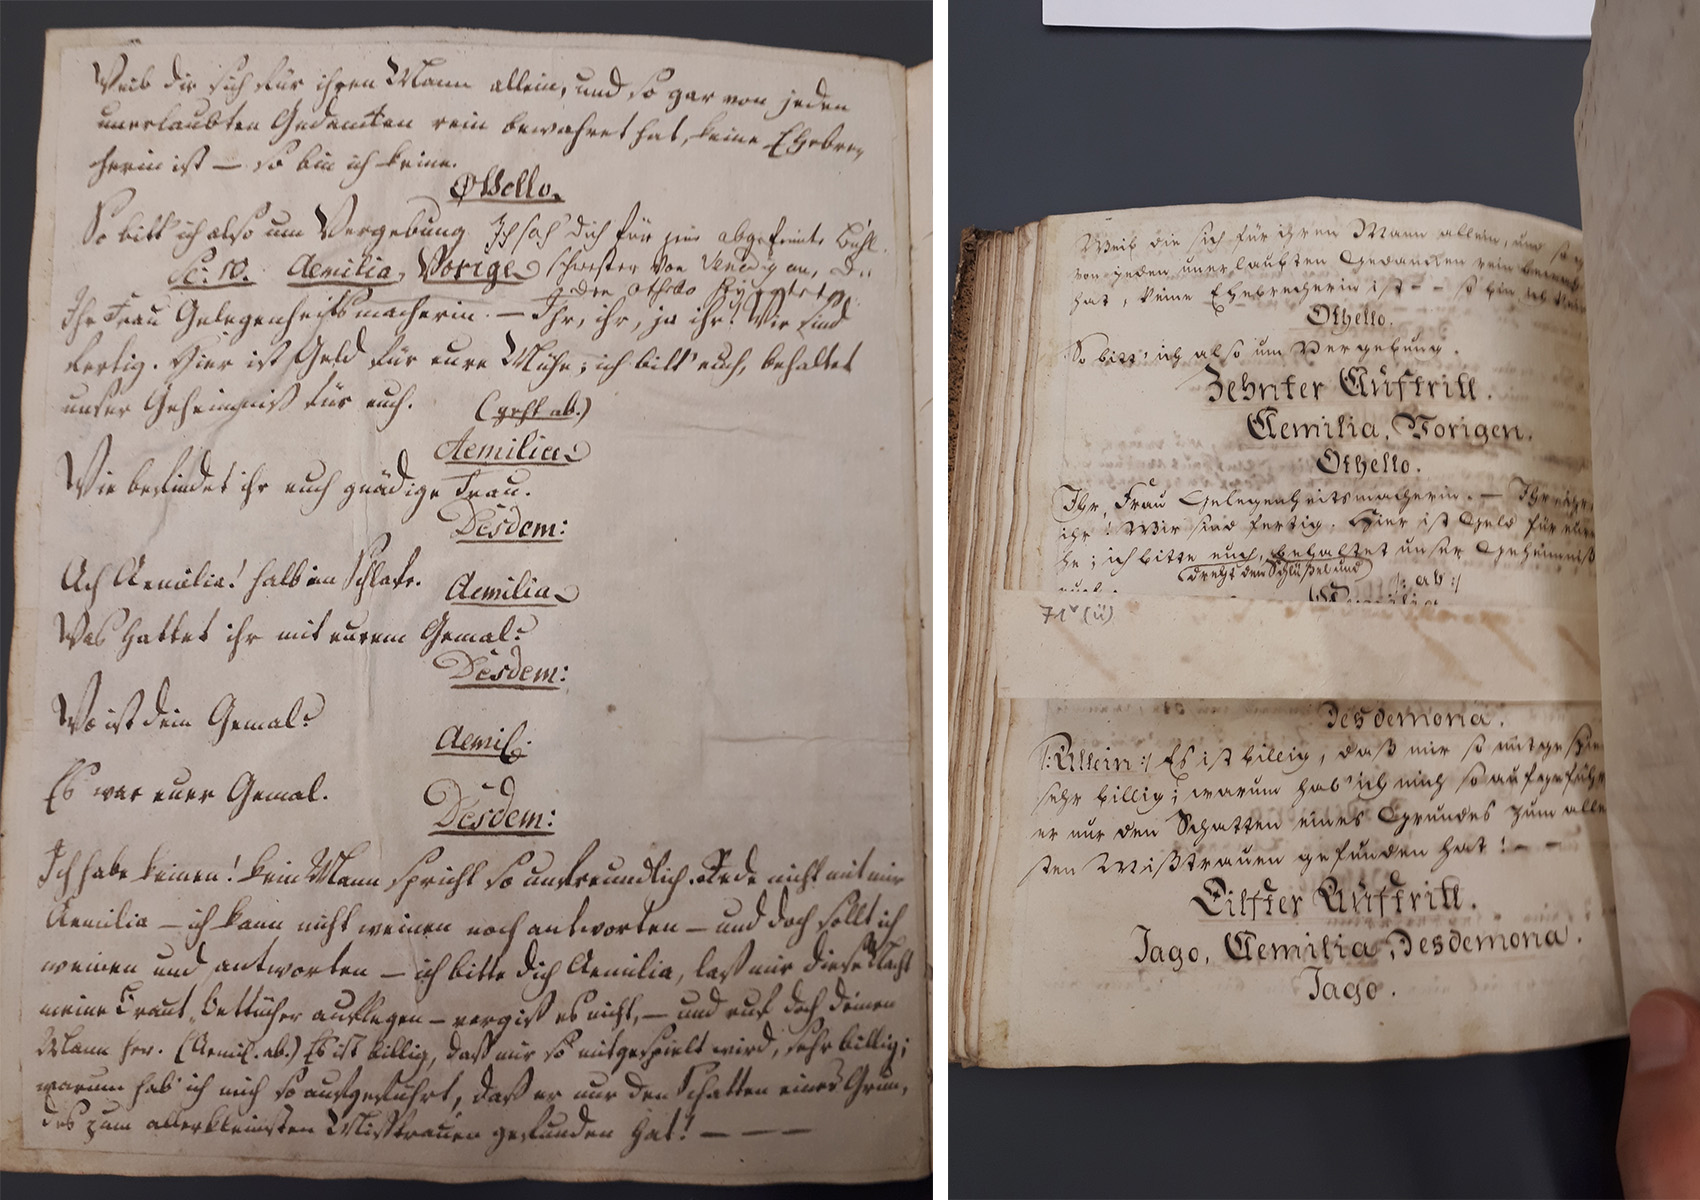 Weib die sich für ihren Mann allein, und so gar von jeden
unerlaubten Gedanken rein bewahret hat, keine Ehebre,
cherin ist — so bin ich keine.
Othello.
So bitt' ich also um Vergebung Ich sah dich für jene abgefeimte Buhl
schwester von Venedig an, die
den Othello
Sc: 10. Aemilia, Vorige
Ihr Frau Gelegenheitsmacherin. — Ihr, ihr, ja ihr! Wir sind
fertig. Hier ist Geld für eure Mühe; ich bitt' euch, behaltet
unser Geheimniß für euch. (geht ab.)
Aemilia
Wie befindet ihr euch gnädige Frau.
Desdem:
Ach Aemilia! halb im Schlafe.
Aemilia
Was hattet ihr mit eurem Gemal?
Desdem:
Wo ist dein Gemal?
Aemil:
Es war euer Gemal.
Desdem:
Ich habe keinen! kein Mann spricht so unfreundlich. Rede nicht mit mir
Aemilia — ich kann nicht weinen noch antworten — und doch sollt ich
weinen und antworten — ich bitte dich Aemilia, laß mir diese Nacht
meine Braut Bettücher auflegen — vergiß es nicht, — und ruf doch deinen
Mann her. (Aemil. ab.) Es ist billig, daß mir so mitgespielt wird, sehr billig;
warum hab' ich mich so aufgeführt, daß er nur den Schatten eines Grun,
des zum allerkleinsten Mißtrauen gefunden hat! — — —
Weib die sich für ihren Mann allein, und so
von jeden unerlaubten Gedancken rein bewah
hat, keine Ehebrecherin ist - - so bin ich
Othello.
So bitt' ich also um Vergebung.
Zehnter Auftritt.
Aemilia, Vorigen.
Othello.
Ihr, Frau Gelegenheitsmacherin. — Ihr
ihr! Wir sind fertig. Hier ist Geld für eure
he; ich bitte euch, behaltet unser Geheimniß
dreht den Schlüßel und
ab:/
71v (ii)
Desdemona.
/:Allein:/ Es ist billig, daß mir so mitgespie
sehr billig; warum hab' ich mich so aufgeführ
er nur den Schatten eines Grundes zum alle
sten Mißtrauen gefunden hat! - -
Eilfter Auftritt.
Jago, Aemilia, Desdemona.
Jago.